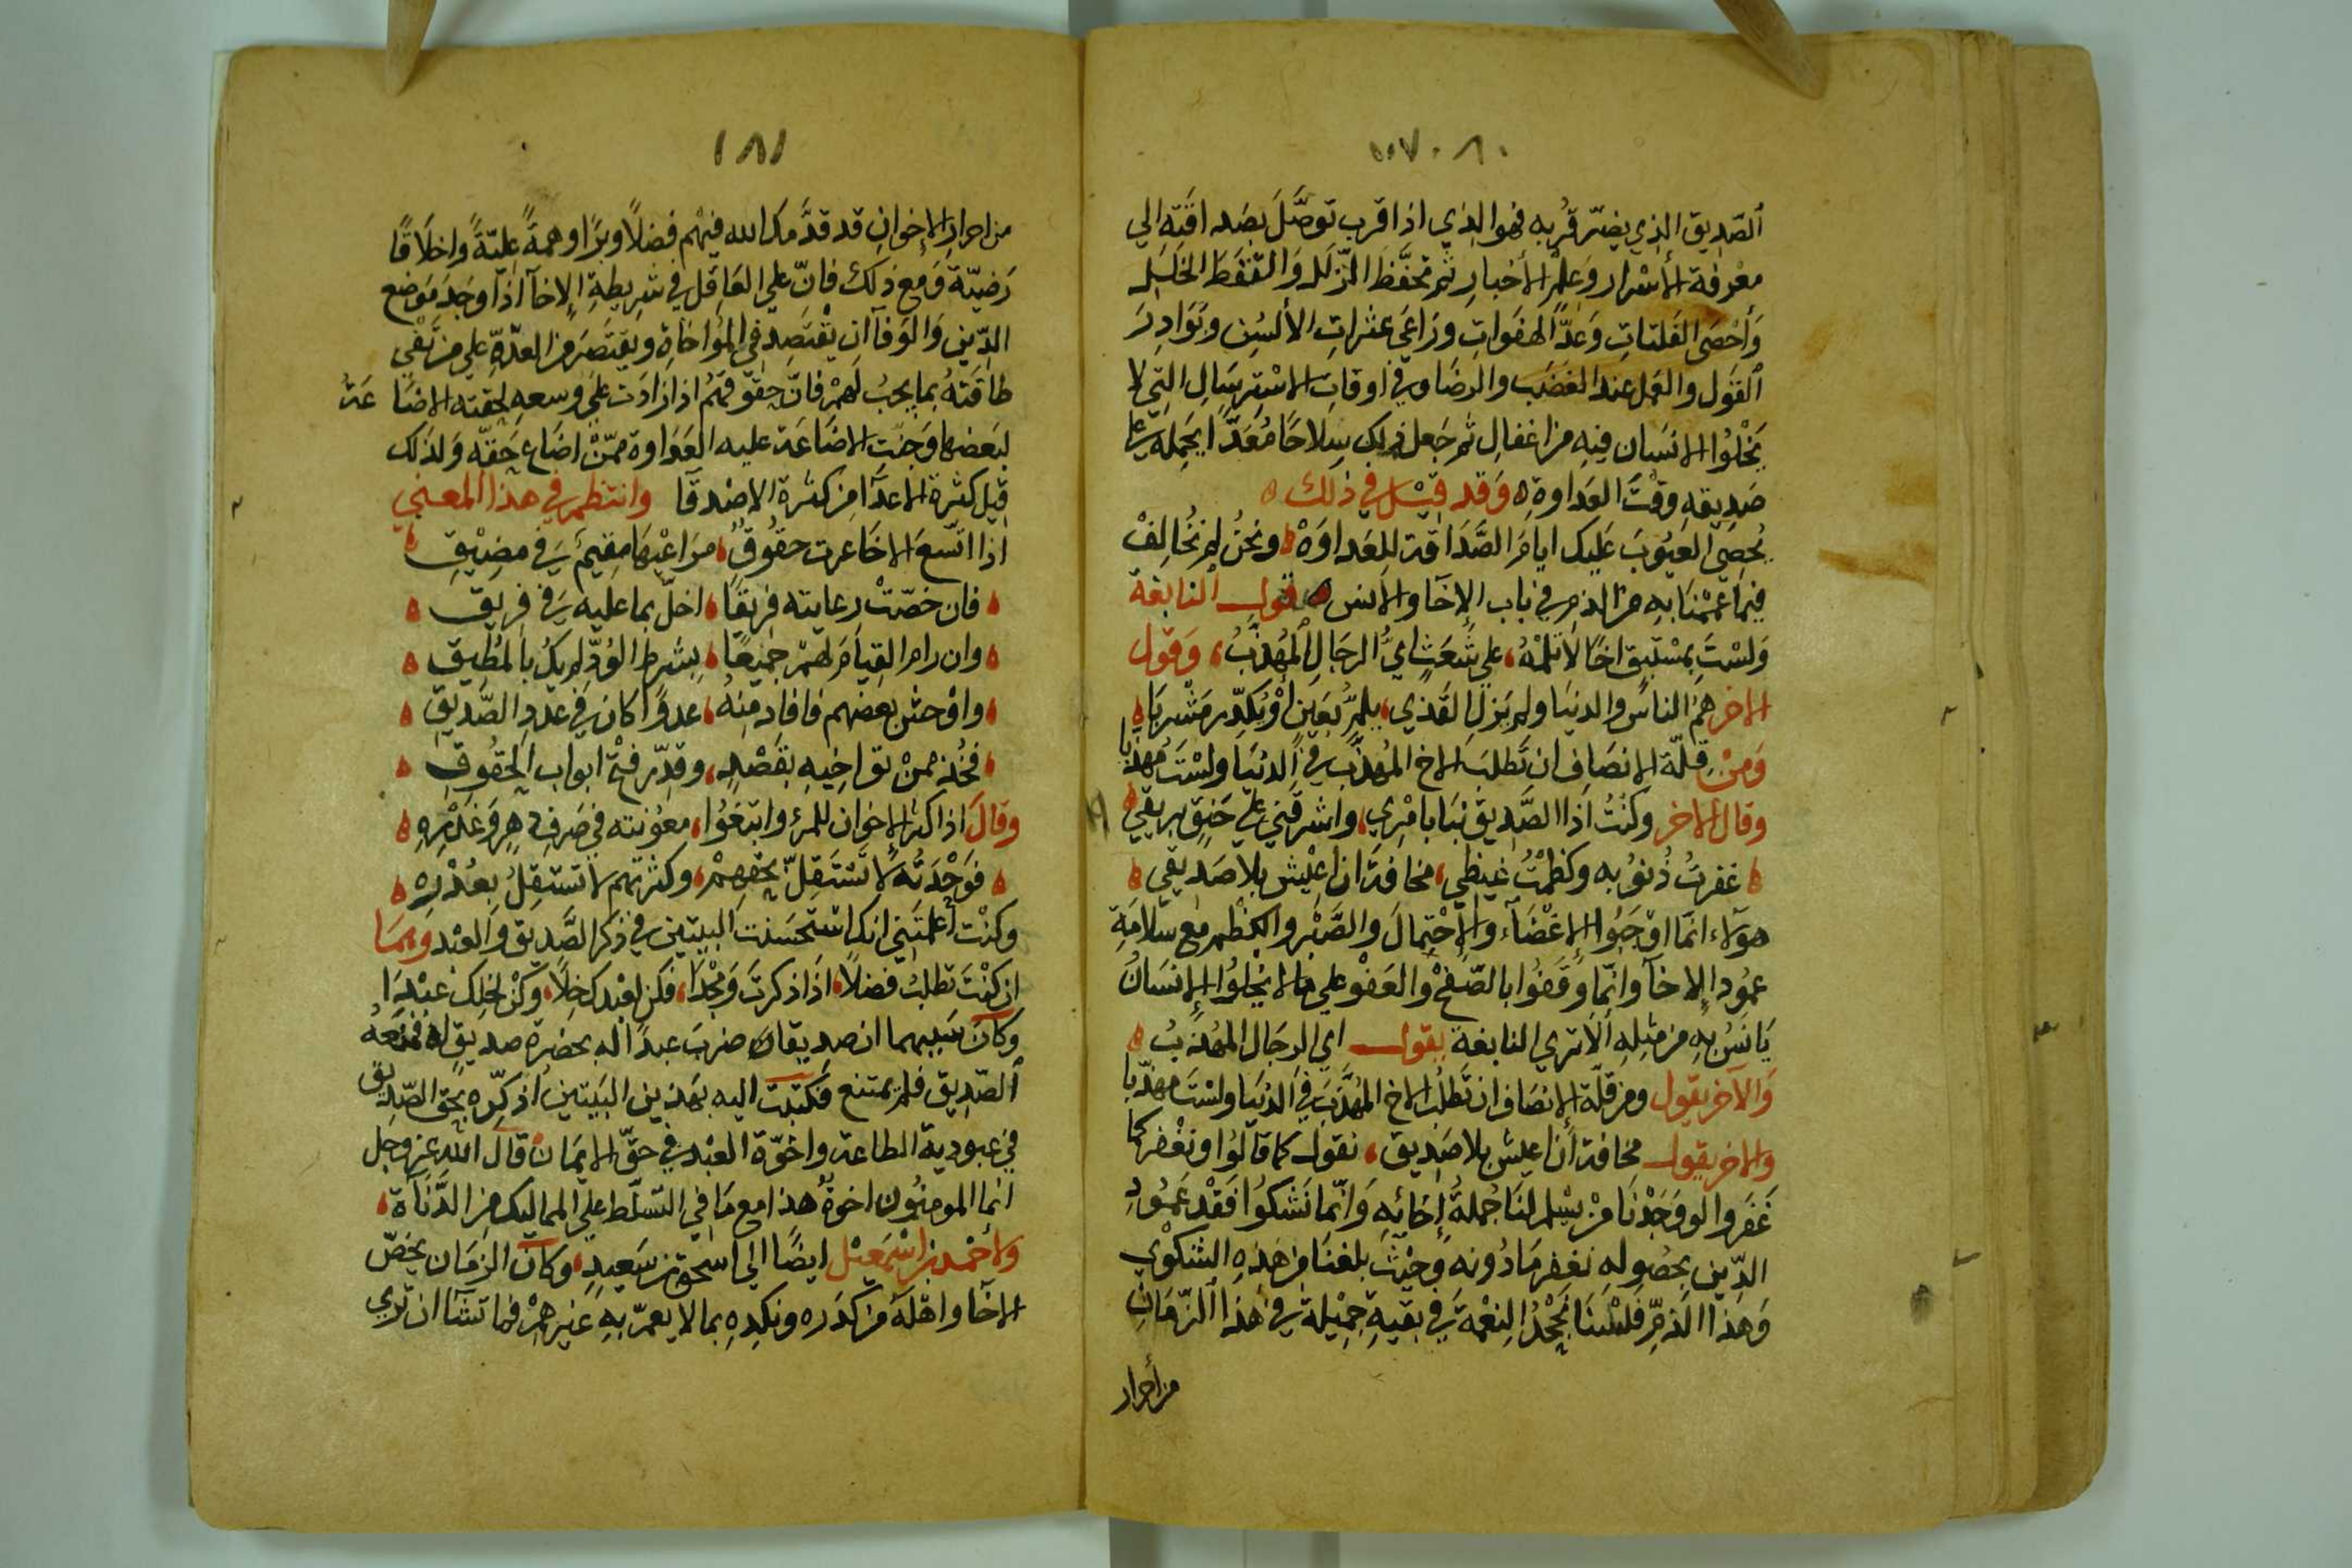 الصّديق الذي يضرّ قُربه فهو الذي اذا قرب توصَّلَ بصداقته الي
معْرفة الأسْرار وَعلْم الأخبارِ ثم تحفَّظ الزّلَل وَالتقَط الخَلَل
وَأحْصَى الفَلتاتِ وَعَدَّ الهفَواتِ ورَاعَى عثراتِ الألسُن وبَوَادِرَ
القَول والعَمل عند الغضَب والرضَا وفي اوقاتِ الاسْترسَالِ التي لا
يَخْلُوا الانسَان فيهِ من اغفالٍ ثم جَعل ذلك سِلاحًا مُعَدًّا يحمله علي
صَديقهِ وقْتَ العَداوة وَقد قيْل في ذلك
يُحصِي العيُوبَ عَليك ايامَ الصَّدَاقة للعَداوَهْ ونحنُ لم نُخالِفْ
فيمَا عَمَّمْنَا بهِ من الذم في باب الإخآ والأنس قول النابغة
وَلسْتَ بمسْتَبقٍ اخًا لاتَلمّهُ علي شَعَثٍ ايُّ الرجَالِ المُهَذَّبُ وَقول
الاخر همُ الناسُ والدنيَا ولم يَزلِ القَذي يلمُّ بعَينٍ اوْ يُكدِّر مَشْربَا
وَمنْ قِلّة الانصَافِ ان تَطلبَ الاخ المُهذَّب في الدنيَا ولسْتَ مُهذّبا
وقال الاخر وكنْتُ اذا الصَّديق نبَا بامْري واشرقَني علي حَنِقٍ بريقي
غفرتُ ذُنوُبه وكظمْتُ غيظي مخافةَ ان اعيْش بلا صَديقي
هوَلآء انمّا اوْجَبُوا الاغْضَآء والإحْتمالَ والصَّبْر والكظْم مع سلامَةِ
عمُود الاخآ وانمّا وَقَفُوا بالصّفحْ والعَفوْ علي ما لا يخْلوُا الإنسَانُ
يَانَسُ بهِ من مثلهِ ألاتري النابغة يقول اي الرجَال المُهذبُ
وَالآخر يقول ومن قلّة الإنصَاف ان تَطلبَ الاخ المُهَذَّبَ في الدُنيَا ولسْتَ مهذّبا
والاخر يقول مخافة أن اعيش بلا صَديق نقول كما قالوُا ونغْفر كما
غَفَروا لو وَجَدْنَا منْ يسْلم لنَا جُملةُ إخَائهِ وَانمّا نَشكوُا فَقْد عَمُودِ
الدّين بحصُوله نغفر مَا دُونه وحيْث بلغنَا من هَذهِ الشكوْي
وَهذا الذمّ فَلسْنَا نجْحدُ النِعْمةَ في بقيةٍ جميْلة في هَذا الزّمَانِ
من أحرار
١٨١
من احرار الإخوانِ قد قدَّمكَ الله فيْهم فضلًا وبرًّا وهمةً عليّةً واخلَاقًا
رَضيّةً وَمع ذلك فانّ علي العَاقل في شريطةِ الاخآ اذا وجَدَ مَوضع
الدّين وَالوَفآ ان يقْتصِد في المُؤاخَاةِ ويقتصرَ من العدّةِ علي من تفي
طاقتهُ بما يجبُ لهمْ فانّ حقوقهُم اذا زادَت علي وسعهِ لحقته الاضَاعَةُ
لبَعضها وَجَنت الاضَاعَة عليه العَدَاوة ممّنْ اضَاعَ حَقّه وَلذلك
قيْل كثرة الاعدَآ من كثرة الاصْدقآ وانتظم في هذا المعني
اذا اتّسعَ الاخَا عرت حقُوقٌ مرَاعيْها مقيم في مضيْق
فان خصّتْ رعايته فريقًا اخلّ بما عليه في فريق
وان رام القيَامَ لهمْ جميعًا بشرط الوُدّ لم يكُ بالمُطيق
واوْحش بعَضهم فافادَ منهُ عدوًّا كانَ في عددِ الصَّديق
فخُذ ممنْ تواخيهِ بقَصْدٍ وقدّر فتحْ ابواب الحقُوق
وقال اذا كثر الإخوان للمرءِ وابتغَوُا معوُنته في صَرفِ دَهرٍ وَغدْرهِ
فوَحْدَتُه لا تَسْتَقلّ بحقهمْ وكثرتهم لا تستَقلُ بعُذْرهِ
وكنْت أعلمتَني انك استحسَنت البيتين في ذكر الصَّديق وَالعبْد وَهما
ان كنْتَ تطلبُ فضلًا اذَا ذكرتَ وَمجْدا فكن لعَبْدك خلّا وكنْ لخلّك عَبْدا
وكانَ سَببهما ان صديقًا لي ضربَ عبدًا له بحضرة صديقٍ له فمنَعهُ
الصّديق فلم يمتنع فكتبت اليه بهَذين البَيتين اذكّره بحق الصّديق
في عبودية الطاعة واخوّة العبْد في حقّ الايمَان قالَ الله عز وجل
انما المومنُون اخوةٌ هذا مع مَا في التّسلّط علي المماليك من الدّنَآة
ولأحْمد بن اسْمَعيْل ايضًا الي اسحق بن سَعيدٍ وكان الزمَان يخصّ
الاخآ واهْلَهُ من كدَره ونكدِهِ بما لا يعمّ بهِ غيرهمْ فما تشآ ان تري